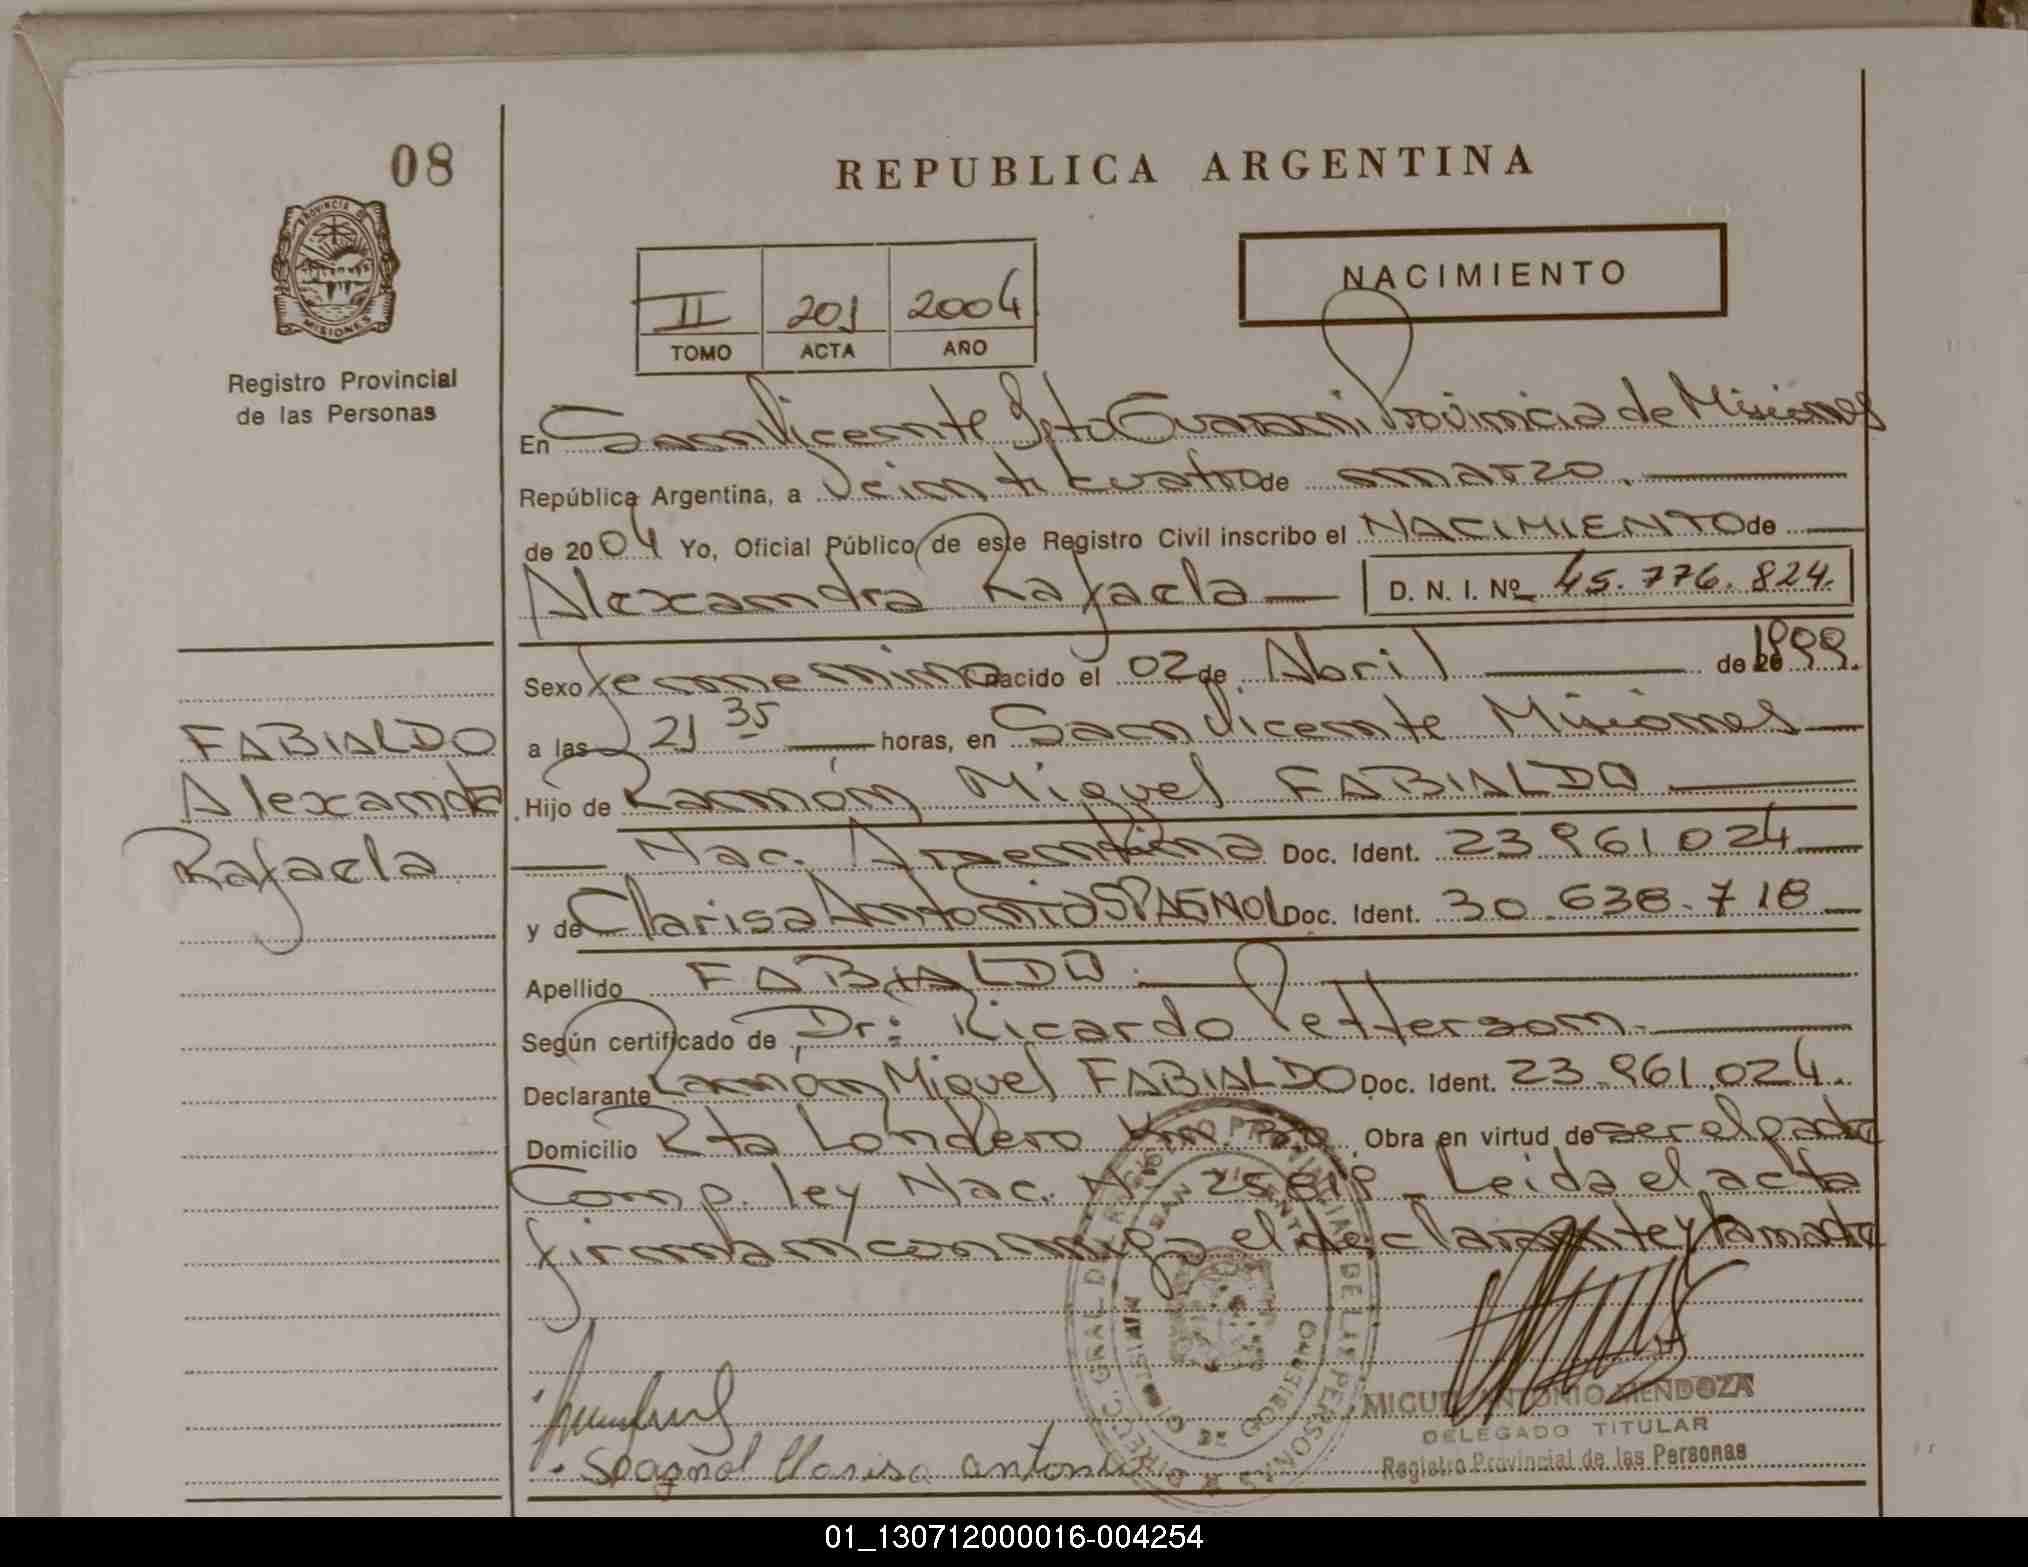 08
REPUBLICA ARGENTINA
PROVINCIA DE
MISIONES
Registro Provincial
de las Personas
NACIMIENTO
II 201 2004
TOMO ACTA AÑO
En San Vicente Dpto Guaraní Provincia de Misiones
República Argentina, a Veinticuatro de marzo.
de 2004 Yo, Oficial Público de este Registro Civil inscribo el NACIMIENTO de
Alexandra Rafaela D. N. I. Nº 45.776.824.
Sexo femenino nacido el 02 de Abril de 1999.
a las 21 35 horas, en San Vicente Misiones
FABIALDO
Alexandra
Rafaela
Hijo de Ramón Miguel FABIALDO
Nac. Argentina Doc. Ident. 23 961 024
y de Clarisa Antonia SPAGNOL Doc. Ident. 30.638.718
Apellido FABIALDO.
Según certificado de Dr: Ricardo Petterson.
Declarante Ramón Miguel FABIALDO Doc. Ident. 23.961.024.
Domicilio Rta Londero Km Obra en virtud de ser el padre
Comp. ley Nac. Nº 25819 Leida el acta
firman conmigo el declarante y la madre
Spagnol Clarisa antonia
MIGUEL ANTONIO MENDOZA
DELEGADO TITULAR
Registro Provincial de las Personas
01_130712000016-004254